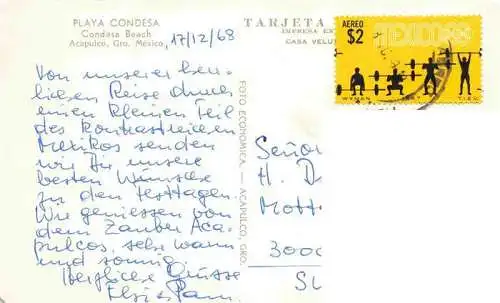 PLAYA CONDESA
Condesa Beach
Acapulco, Gro. Mexico,
17/12/68
TARJETA
IMPRESA EN
CASA VELU
AEREO
$2
Von unserer herr-
lichen Reise durch
einen kleinen Teil
des kontrastreichen
Mexikos senden
wir Dir unsere
besten Wünsche
zu den Festtagen.
Wir geniessen von
dem Zauber Aca-
pulcos, sehr warm
und sonnig.
Herzliche Grüsse
FOTO ECONOMICA — ACAPULCO, GRO.
Señor
H. D
Mott
3000